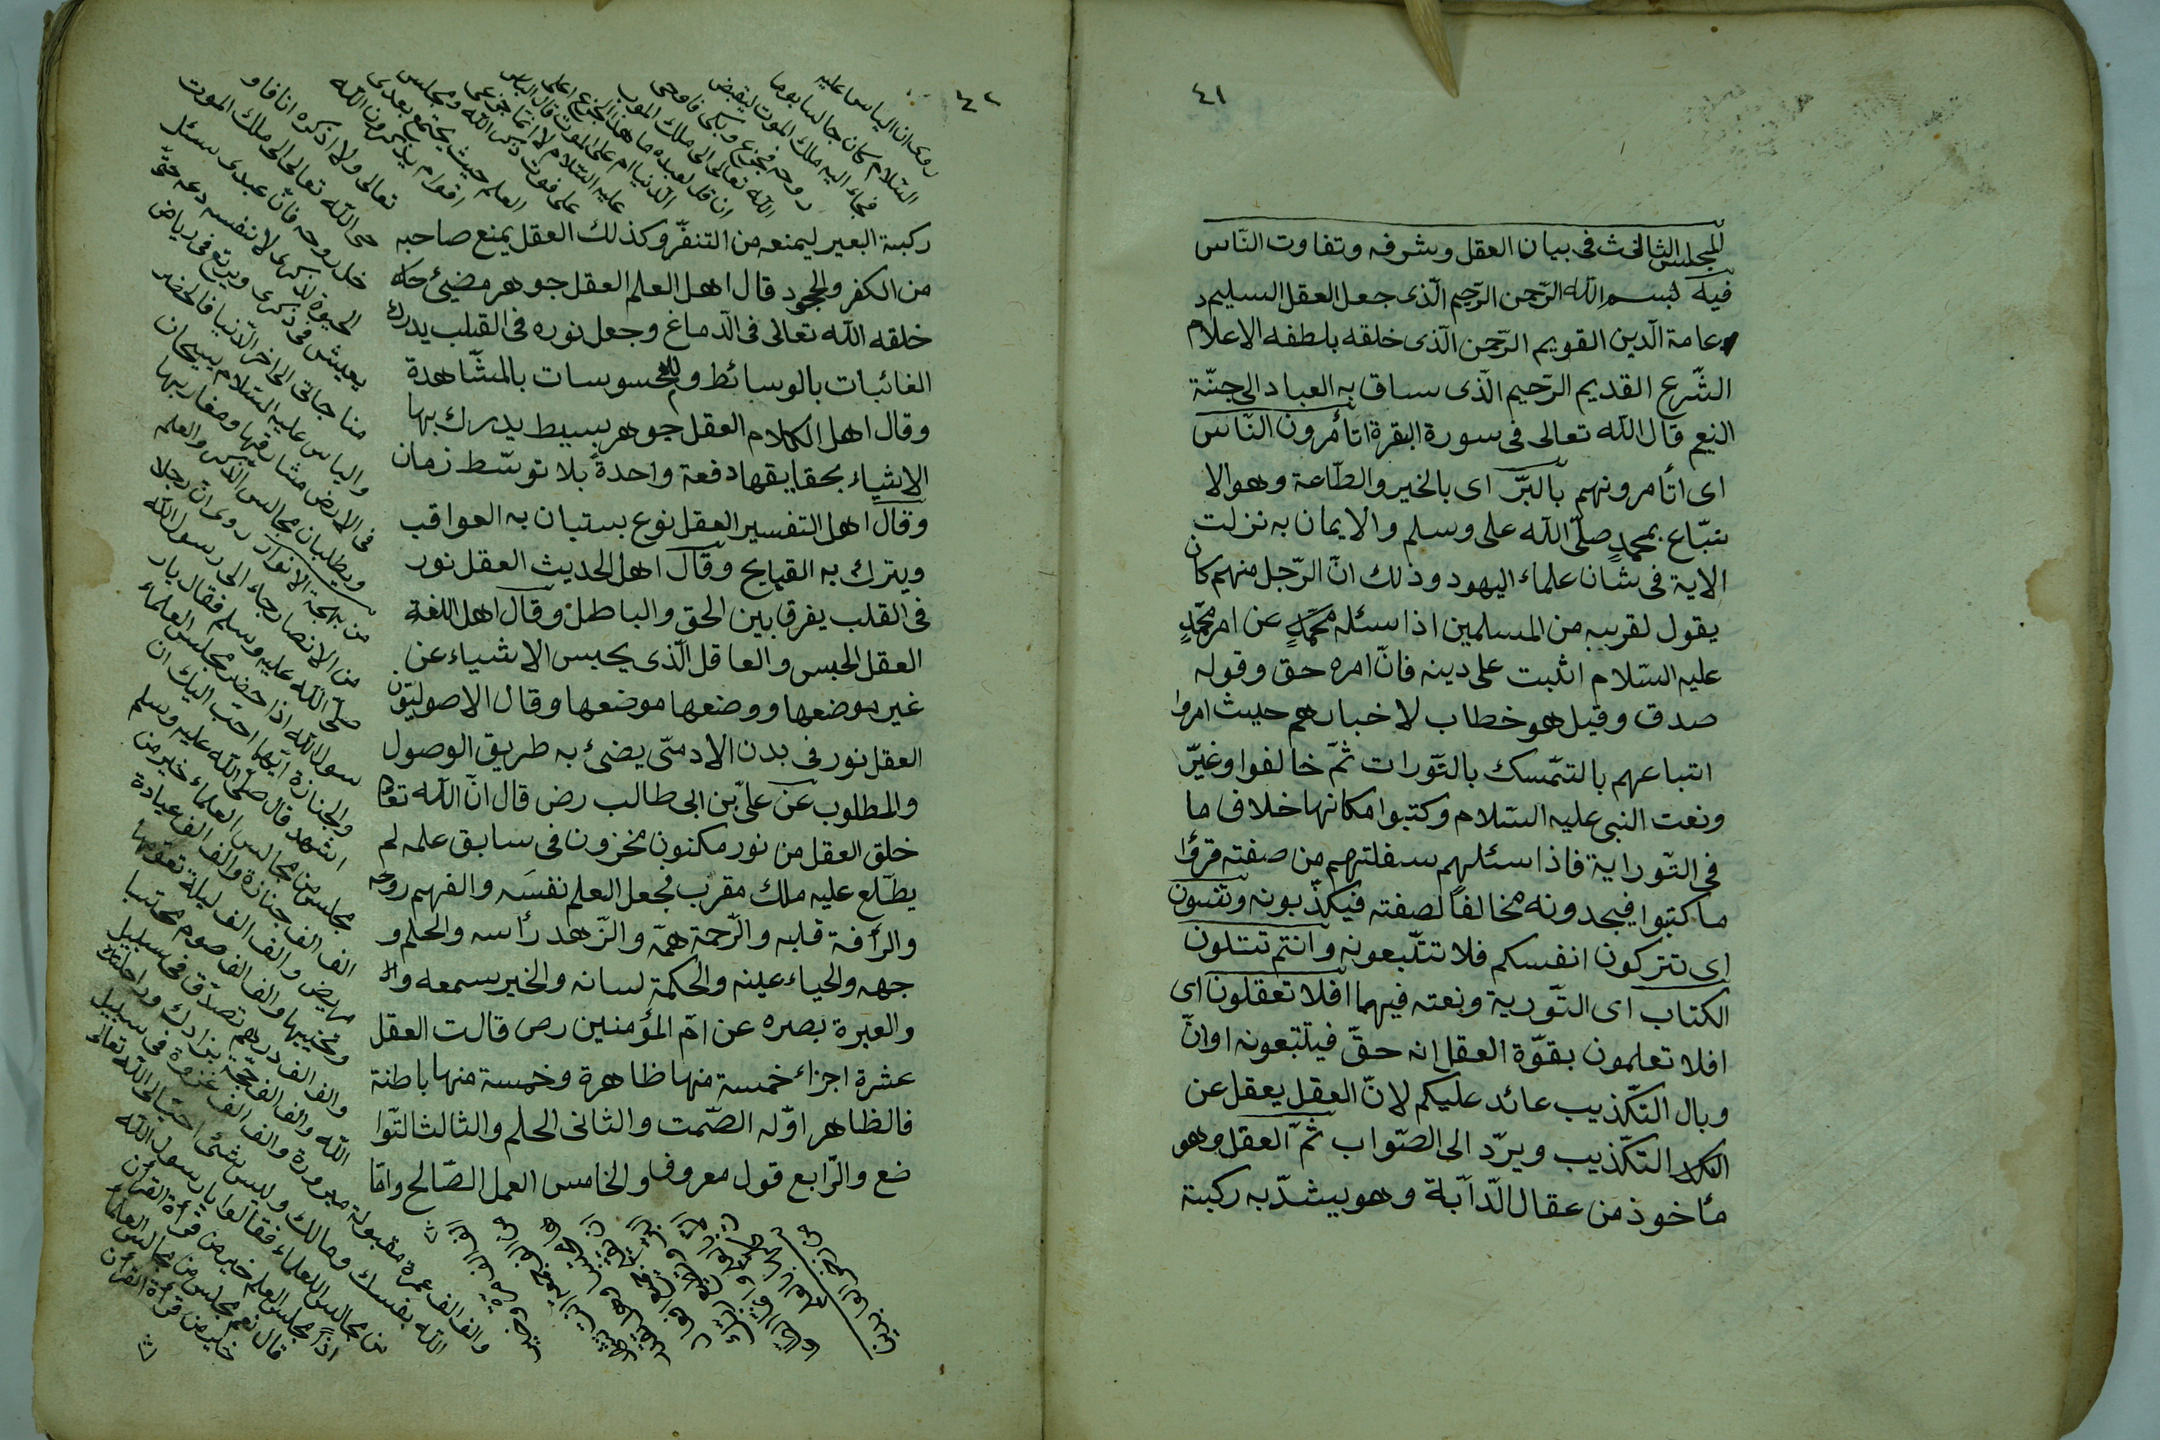 ٤١
المجلس الثالث في بيان العقل وشرفه وتفاوت النّاس
فيه بسم الله الرّحمن الرّحيم الّذى جعل العقل السليم د
عامة الدّين القويم الرّحمن الّذى خلقه بلطفه الاعلام
الشّرع القديم الرّحيم الّذى ساق به العباد الى جنّة
النعيم قال الله تعالى فى سورة البقرة اتأمرون النّاس
اى اتأمرونهم بالبرّ اى بالخير والطّاعة وهو الا
تبّاع بمحمدٍ صلّى الله على وسلم والايمان به نزلت
الاية فى شان علماء اليهود وذلك انّ الرّجل منهم كان
يقول لقريبه من المسلمين اذا سئله محمّدٍ عن امر محمّدٍ
عليه السّلام اثبت على دينه فانّ امره حق وقوله
صدق وقيل هو خطاب لاخبارهم حيث امروا
اتباعهم بالتمّسك بالتّورات ثمّ خالفوا وغيّر
ونعت النبى عليه السّلام وكتبوا مكانها خلاف ما
فى التّوراية فاذا سئلهم سفلتهم من صفته قرؤا
ما كتبوا فيجدونه مخالفاً لصفته فيكذّبونه وتنسون
اى تتركون انفسكم فلا تتّبعونه وانتم تتلون
الكتاب اى التّورية ونعته فيهما افلا تعقلون اى
افلا تعلمون بقوّة العقل انه حقّ فيتّبعونه اوانّ
وبال التكّذيب عائد عليكم لانّ العقل يعقل عن
التكّذيب ويردّ الى الصّواب ثمّ العقل وهو
مأخوذ من عقال الدّآبّة وهو يشدّ به ركبة
٤٢
ركبة البعير ليمنعه من التنفّر وكذلك العقل يمنع صاحبه
من الكفر والجحود قال اهل العلم العقل جوهر مضيئ
خلقه الله تعالى فى الدّماغ وجعل نوره فى القلب يدرك
الغائبات بالوسائط والمحسوسات بالمشّاهدة
وقال اهل الكلام العقل جوهر بسيط يدرك بها
الاشياء بحقايقها دفعة واحدةً بلا توسّط زمان
وقال اهل التفسير العقل نوع يستبان به العواقب
ويترك به القبايح وقال اهل الحديث العقل نور
فى القلب يفرق بين الحق والباطل وقال اهل اللغة
العقل الحبس والعاقل الّذى يحبس الاشياء عن
غير موضعها ووضعها موضعها وقال الاصوليّون
العقل نور فى بدن الادمىّ يضئ به طريق الوصول
والمطلوب عن علىّ بن ابى طالب رض قال انّ الله تعالى
خلق العقل من نور مكنون مخزون فى سابق علمه لم
يطّلع عليه ملك مقرب فجعل العلم نفسَه والفهم روحه
والرأفة قلبه والرّحمة همّه والزّهد رأسه والحلم و
جهه والحياء عينه والحكمة لسانه والخير سمعه والا
والعبرة بصره عن امّ المؤمنين رض قالت العقل
عشرة اجزاء خمسة منها ظاهرة وخمسة منها باطنة
فالظاهر اوّله الصّمت والثانى الحلم والثالث التّوا
ضع والرّابع قول معروف والخامس العمل الصّالح وامّا
روى ان الياس عليه
السّلام كان جالسا يوما
فجاء اليه ملك الموت ليقبض
روحه فجزع وبكى فاوحى
الله تعالى الى ملك الموت
ان قل لعبده ما هذا الجزع اعلى
الدّنيا ام على الموت قال الياس
عليه السّلام لا انّما جزعى
على فوت ذكر الله ومجلس
العلم حيث يجتمع بعدى
اقوام يذكرون الله
تعالى ولا اذكره انا فاو
حى الله تعالى الى ملك الموت
خل روحه فانّ عبدى سئل
الحيوة لذكرى لا لنفسه دعه حتّى
يعيش فى ذكرى ويرتع فى رياض
مناجاتى الى اخر الدّنيا فالخضر
والياس عليه السّلام يسيحان
فى الارض مشارقها ومغاربها
ويطلبان مجالس الذّكر والعلم
من بهجة الانوار روى انّ رجلا
من الانصار جاء الى رسول الله
صلّى الله عليه وسلم فقال يار
سول الله اذا حضر مجلس العلماء
والجنازة ايّهما احبّ اليك ان
اشهد قال صلّى الله عليه وسلم
مجلس من مجالس العلماء خير من
الف الف جنازة والف الف عيادة
مريض والف الف ليلة تقومها
والف الف صوم
والف الف درهم تصدّق فى سبيل
الله والف الف حجّة بزادك وراحلتك
مبرورة والف الف غزوة فى سبيل
الله بنفسك ومالك وليس شئ احبّ الى الله تعالى
من مجالس العلماء فقالوا يا رسول الله
اذاً مجلس العلم خير من قرأة القرأن
قال نعم مجلس من مجالس العلماء
خير من قرأة القرأن